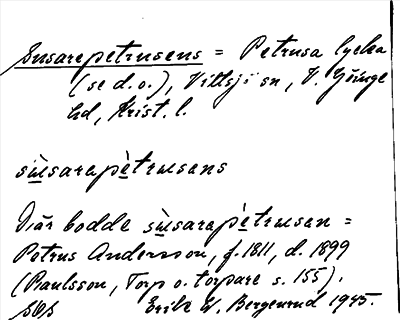 Susarepetrusens = Petrusa lycka
(se d.o.), Vittsjö sn, V. Göinge
hd, Krist. l.
sùsarapètrusans
Där bodde sùsarapètrusen =
Petrus Andersson, f. 1811, d. 1899
(Paulsson, Torp o. torpare s. 155).
Erik W. Bergenrud 1945.